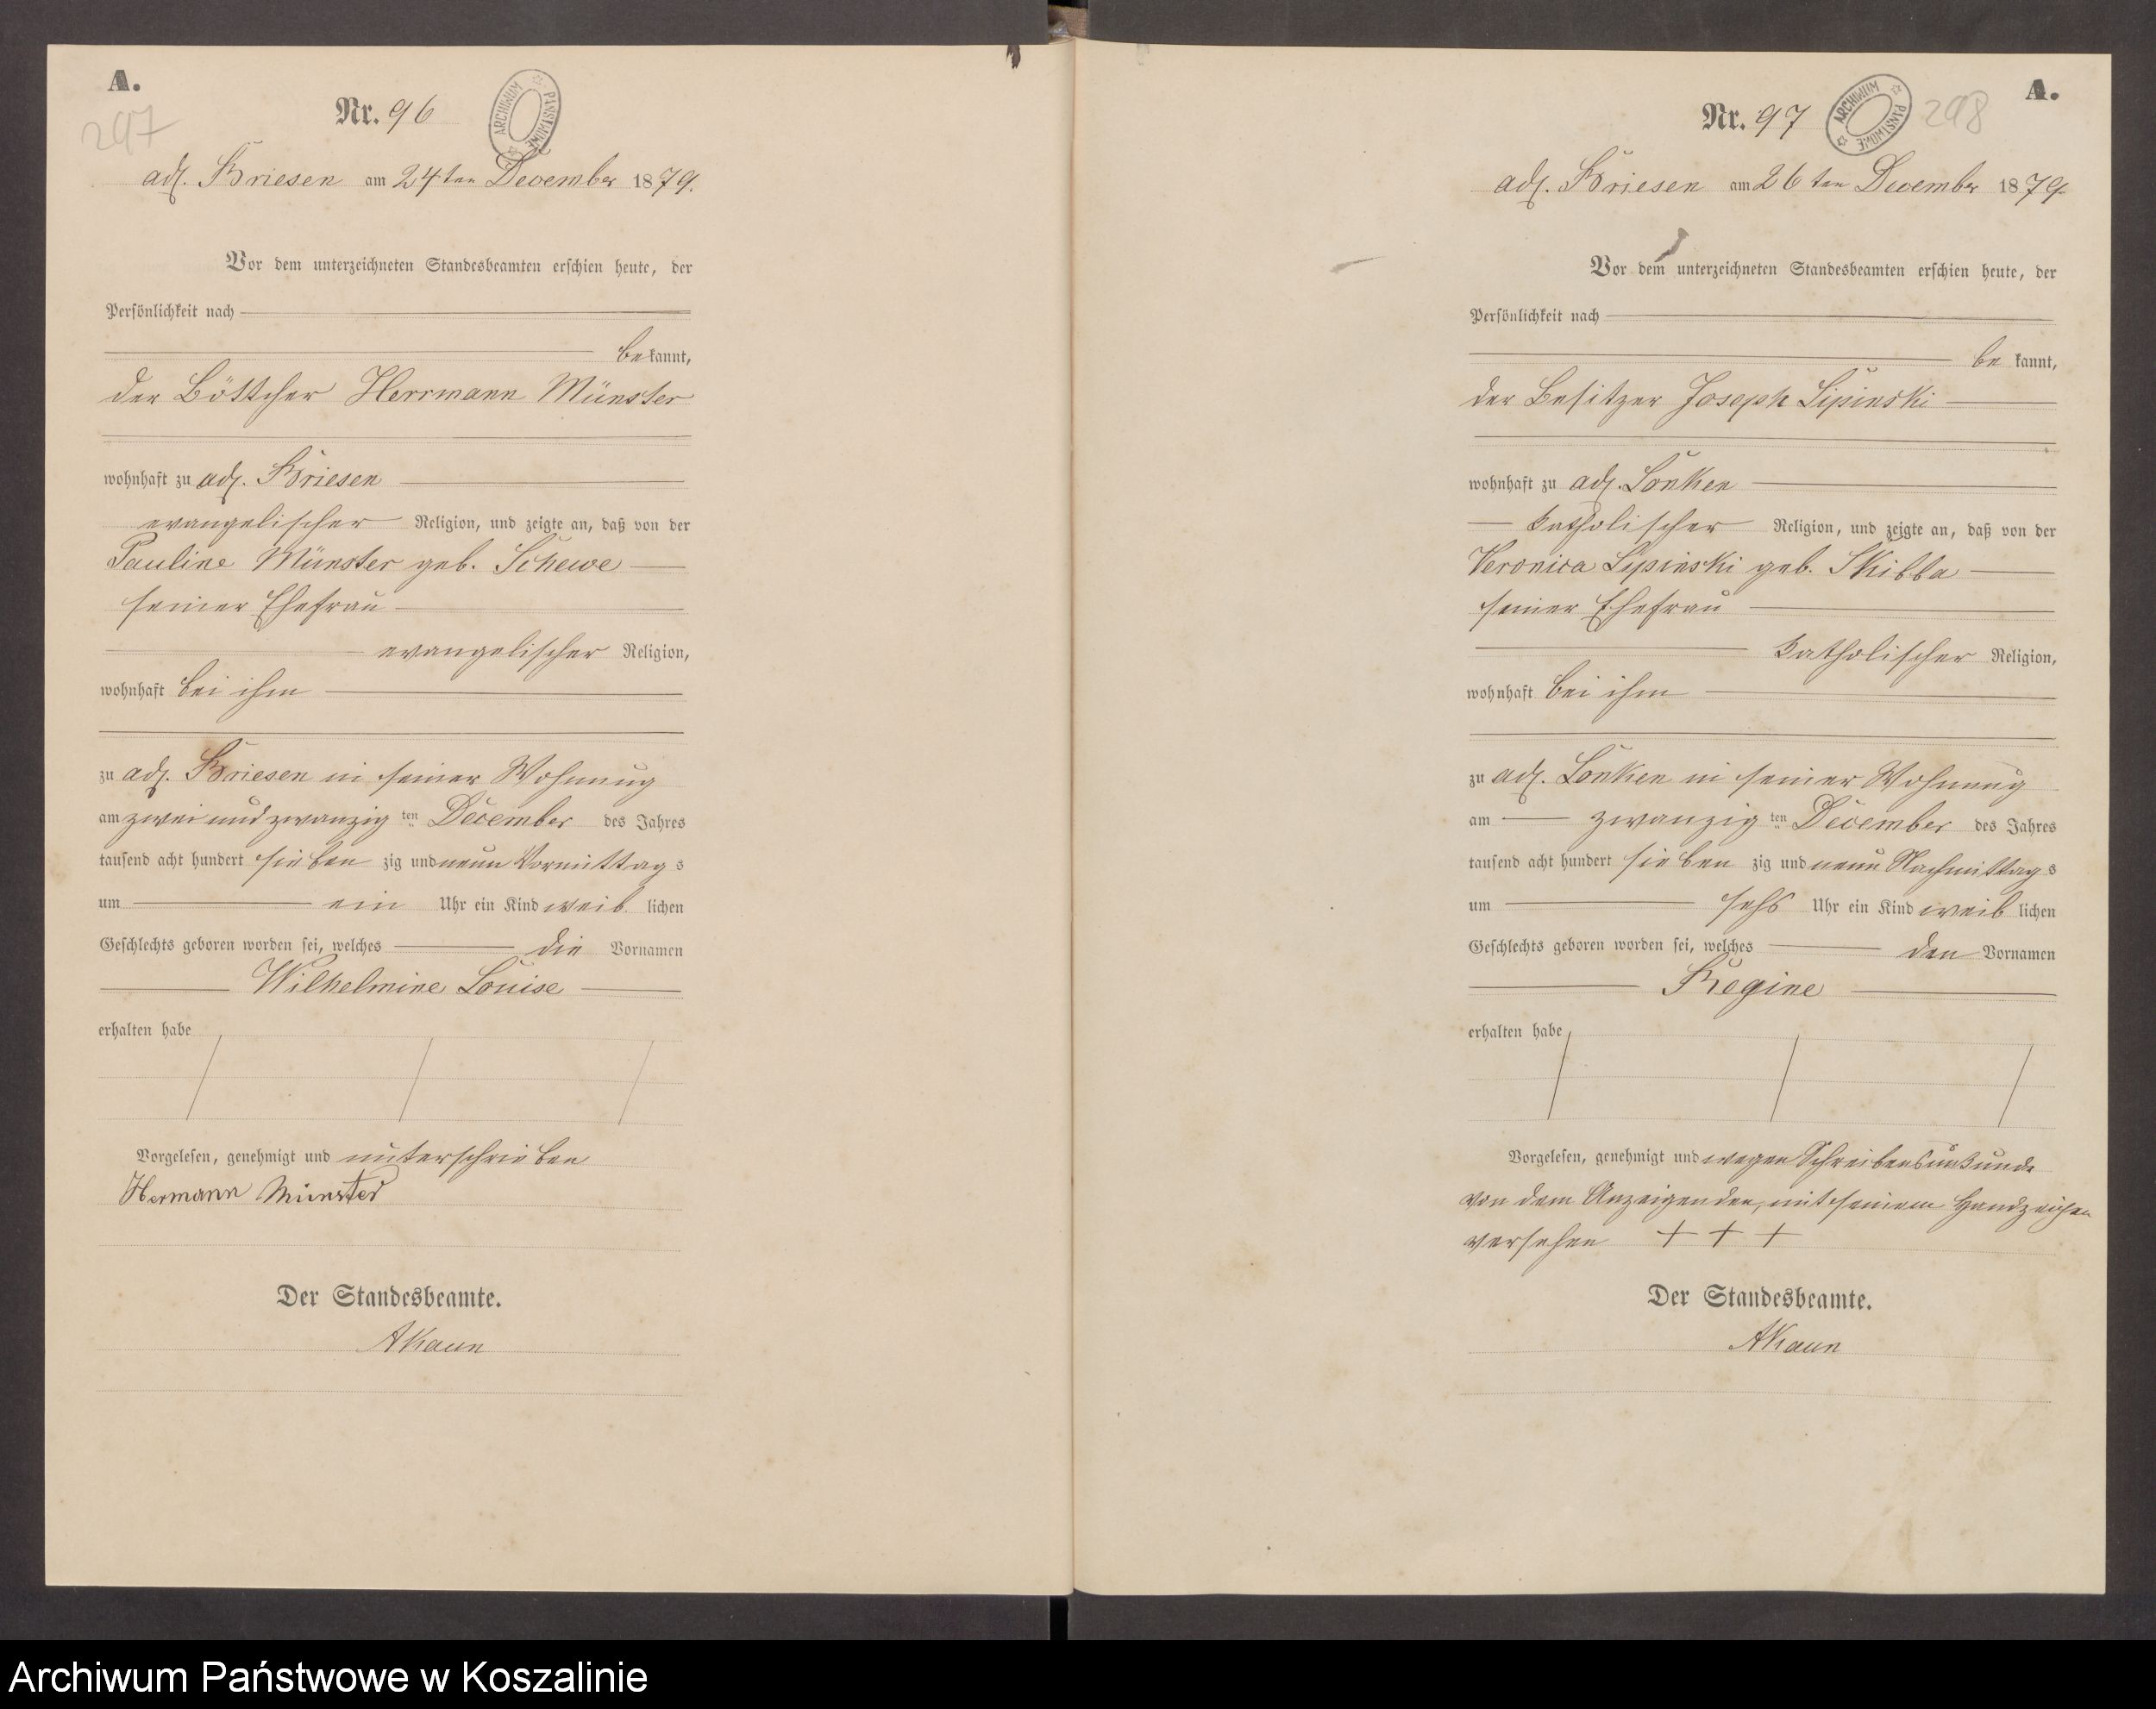 A.
297
Nr. 96
ARCHIWUM PAŃSTWOWE
adl. Briesen am 24ten December 1879.
Vor dem unterzeichneten Standesbeamten erschien heute, der
Persönlichkeit nach
bekannt,
der Böttcher Herrmann Münster
wohnhaft zu adl. Briesen
evangelischer Religion, und zeigte an, daß von der
Pauline Münster geb. Schewe
seiner Ehefrau
evangelischer Religion,
wohnhaft bei ihm
zu adl. Briesen in seiner Wohnung
am zwei und zwanzig ten December des Jahres
tausend acht hundert sieben zig und neun Vormittag s
um ein Uhr ein Kind weib lichen
Geschlechts geboren worden sei, welches die Vornamen
Wilhelmine Louise
erhalten habe
Vorgelesen, genehmigt und unterschrieben
Hermann Münster
Der Standesbeamte.
AKaun
A.
298
Nr. 97
ARCHIWUM PAŃSTWOWE
adl. Briesen am 26ten December 1879.
Vor dem unterzeichneten Standesbeamten erschien heute, der
Persönlichkeit nach
be kannt,
der Besitzer Joseph Lipinski
wohnhaft zu adl. Lonken
katholischer Religion, und zeigte an, daß von der
Veronica Lipinski geb. Skibba
seiner Ehefrau
katholischer Religion,
wohnhaft bei ihm
zu adl. Lonken in seiner Wohnung
am zwanzig ten December des Jahres
tausend acht hundert sieben zig und neun Nachmittag s
um sehs Uhr ein Kind weib lichen
Geschlechts geboren worden sei, welches den Vornamen
Regine
erhalten habe
Vorgelesen, genehmigt und wegen Schreibensunkunde
von dem Anzeigenden, mit seinem Handzeichen
versehen + + +
Der Standesbeamte.
AKaun
Archiwum Państwowe w Koszalinie